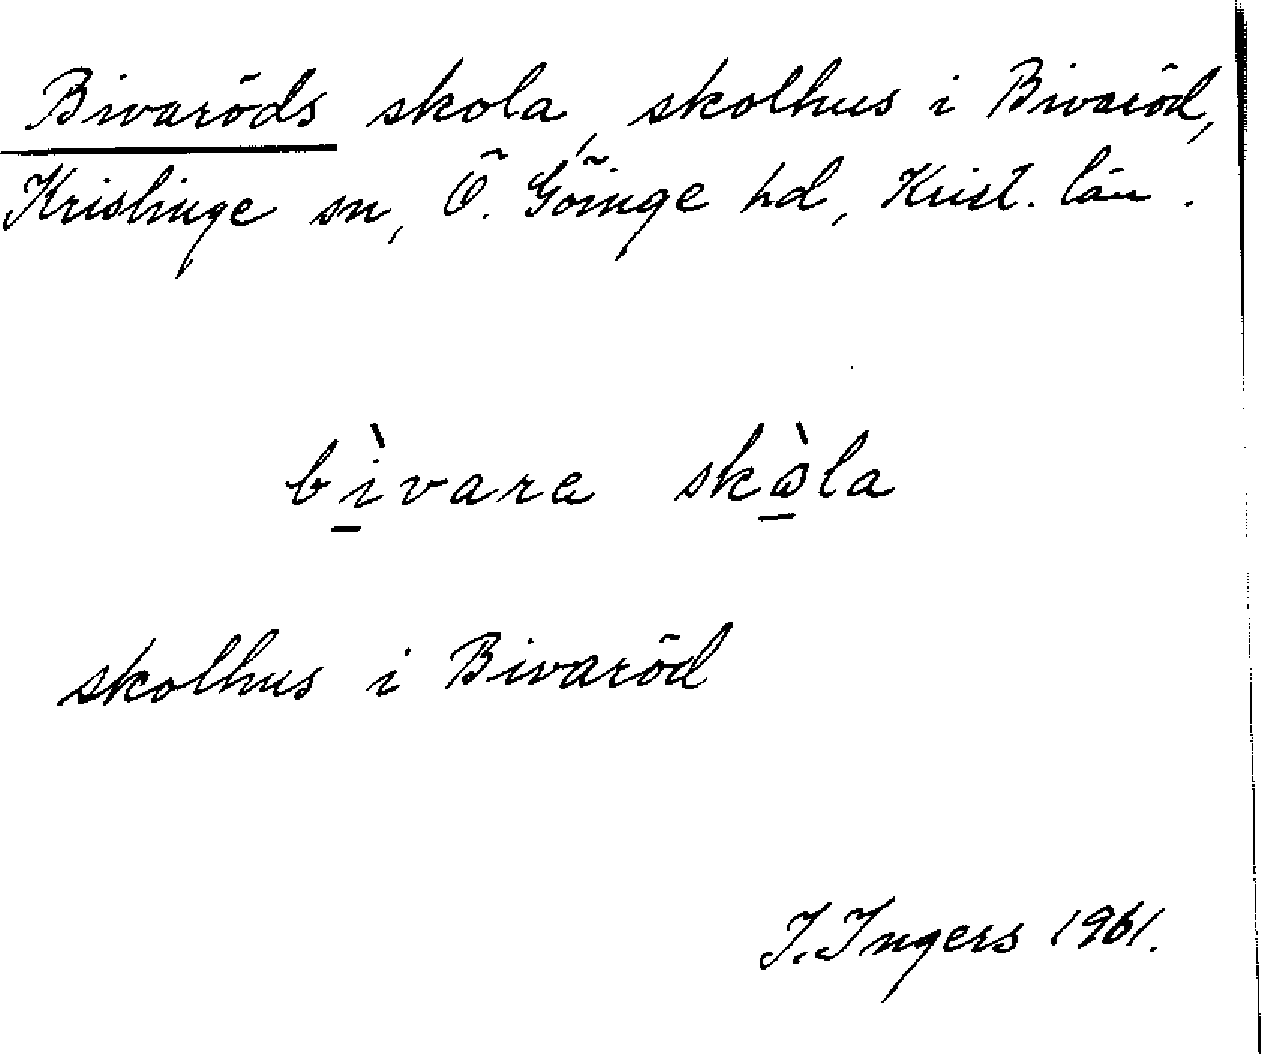 Bivaröds skola, skolhus i Bivaröd,
Kristinge sn, Ö. Göinge hd, Krist. län.
bìvara skὼla
skolhus i Bivaröd
I. Ingers 1961.